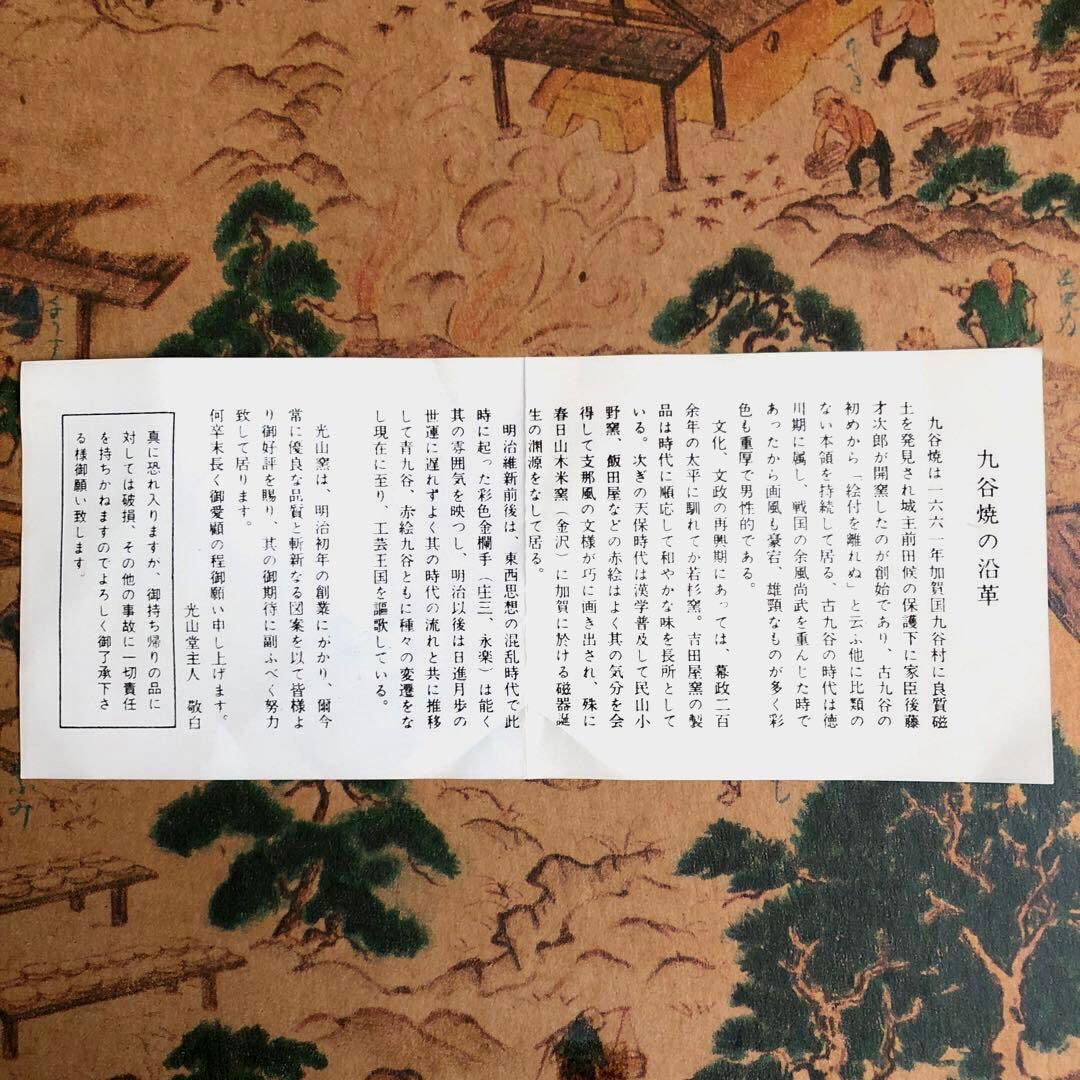 九谷焼の沿革
九谷焼は一六六一年加賀国九谷村に良質磁
土を発見され城主前田候の保護下に家臣後藤
才次郎が開窯したのが創始であり、古九谷の
初めから「絵付を離れぬ」と云ふ他に比類の
ない本領を持続して居る、古九谷の時代は徳
川期に属し、戦国の余風尚武を重んじた時で
あったから画風も豪宕、雄頸なものが多く彩
色も重厚で男性的である。
文化、文政の再興期にあっては、幕政二百
余年の太平に馴れてか若杉窯。吉田屋窯の製
品は時代に順応して和やかな味を長所として
いる。次ぎの天保時代は漢学普及して民山小
野窯、飯田屋などの赤絵はよく其の気分を会
得して支那風の文様が巧に画き出され、殊に
春日山木米窯(金沢)に加賀に於ける磁器誕
生の渊源をなして居る。
明治維新前後は、東西思想の混乱時代で此
時に起った彩色金欄手(庄三、永楽)は能く
其の雰囲気を映つし、明治以後は日進月歩の
世運に遅れずよく其の時代の流れと共に推移
して青九谷、赤絵九谷ともに種々の変遷をな
し現在に至り、工芸王国を謳歌している。
光山窯は、明治初年の創業にがかり、爾今
常に優良な品質と斬新なる図案を以て皆様よ
り御好評を賜り、其の御期待に副ふべく努力
致して居ります。
何卒末長く御愛顧の程御願い申し上げます。
光山堂主人 敬白
真に恐れ入りますか、御持ち帰りの品に
対しては破損、その他の事故に一切責任
を持ちかねますのでよろしく御了承下さ
る様御願い致します。